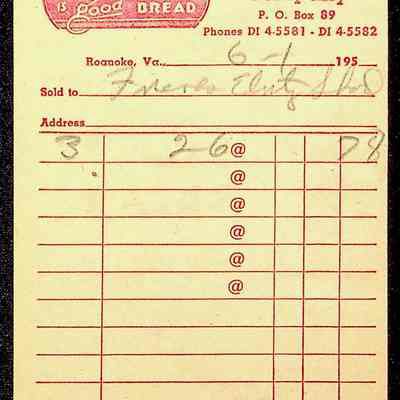 IS Good BREAD
P. O. Box 89
Phones DI 4-5581 - DI 4-5582
Roanoke, Va. 6-1 195
Sold to
Address
3 26 @ 78
@
@
@
@
@